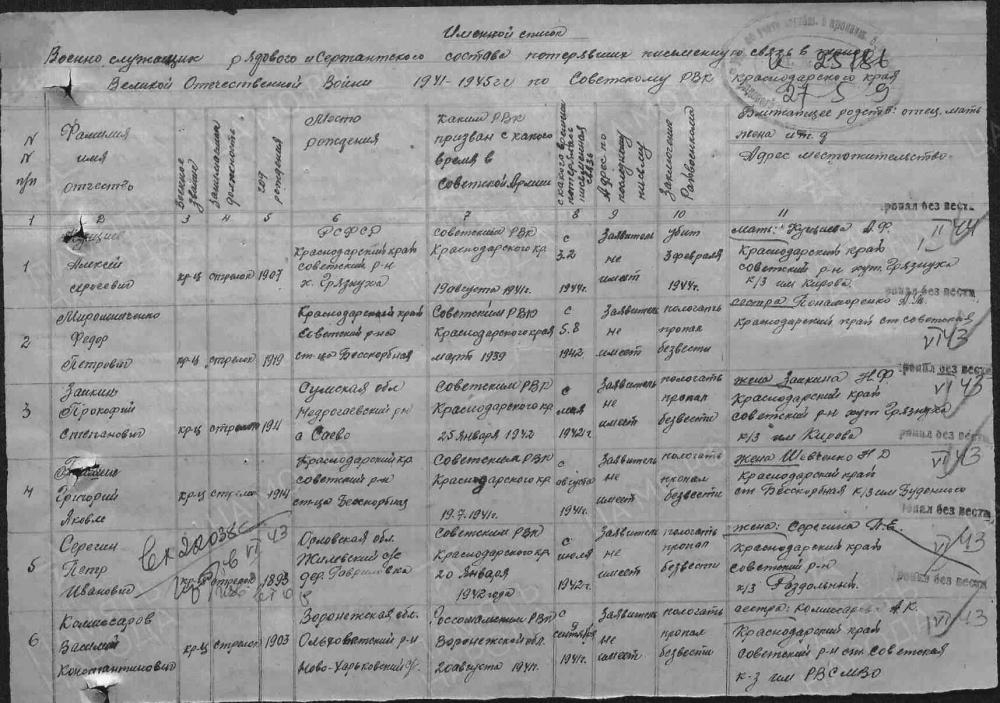 Именной список
Военно служащих рядового и Сержантского состава потерявших письменную связь в период
Великой Отечественной Войны 1941-1945 гг по Советскому РВК Краснодарского края
N N п/п
Фамилия имя отчество
Военное звание
занимаемая должность
год рождения
Место рождения
каким РВК призван с какого время в Советской Армии
с какого времени потерялась письменная связь
Адрес по последнему письму
Заключение Райвоенкома
Ближайшее родств: отец, мать жена и т.д
Адрес местожительство
1 2 3 4 5 6 7 8 9 10 11
пропал без вести
1
Алексей
Сергеевич
кр-ц стрелок 1907
РСФСР
Краснодарский край
советский р-н
х. Грязнуха
советским РВК
Краснодарского кр
19 августа 1941г.
с
3.2
1944г.
Заявитель
не
имеет
убит
3 февраля
1944г.
мать: Кущиева А.Ф.
Краснодарский край
советский р-н хут. Грязнуха
к/з им Кирова
II 44
пропал без вести
2
Мирошниченко
Федор
Петрович
кр-ц стрелок 1919
Краснодарский край
Советский р-на
ст-ца Бесскорбная
Советским РВК
Краснодарского края
март 1939
с
5.8
1942
Заявитель
не
имеет
пологать
пропал
безвести
сестра Понаморенко
Краснодарский край ст советская
VI 43
пропал без вести
3
Заикин
Прокофий
Степанович
кр-ц стрелок
Сумская обл
Недрогаевский рн
Саево
Советским РВК
Краснодарского кр
25 января 1942
с
мая
1942г.
Заявитель
не
имеет
пологать
пропал
безвести
жена Заикина Н.Ф
Краснодарский край
советский р-н хут Грязнуха
к/з им Кирова
VI 43
пропал без вести
4
Григорий
Яковле
кр-ц стрелок 1914
Краснодарский кр
советский р-н
ст-ца Бесскорбная
Советским РВК
Краснодарского кр
19.7.1941г.
с
августа
1941г.
Заявитель
не
имеет
пологать
пропал
безвести
жена Шевченко Н Д
Краснодарский край
ст Бесскорбная к/з им Буденного
VI 43
пропал без вести
5
Серегин
Петр
Иванович
VI 43
кр-ц стрелок 1893
Орловская обл.
Жилевский с/с
дер. Гавриловка
Советским РВК
Краснодарского кр
20 Января
1942 года
с
июля
1942г.
Заявитель
не
имеет
пологать
пропал
безвести
жена: Серегина П.Е.
Краснодарский край
советский р-н
к/з Раздольный.
VI 43
пропал без вести
6
Комиссаров
Василий
Константинович
кр-ц стрелок 1903
Воронежская обл.
Ольховатский р-н
Ново-Харьковский с/с
Россошанским РВК
Воронежской обл.
20 августа 1941г.
с
9
сентября
1941г.
Заявитель
не
имеет
пологать
пропал
безвести
сестра: Комиссарова А.К.
Краснодарский край
советский р-н ст. Советская
к-з им РВСМВО
VI 43